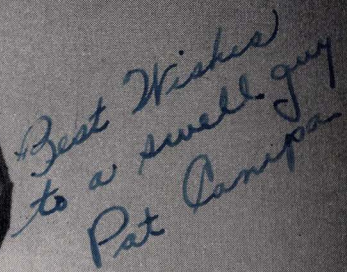 Best Wishes
to a swell guy
Pat Canipa